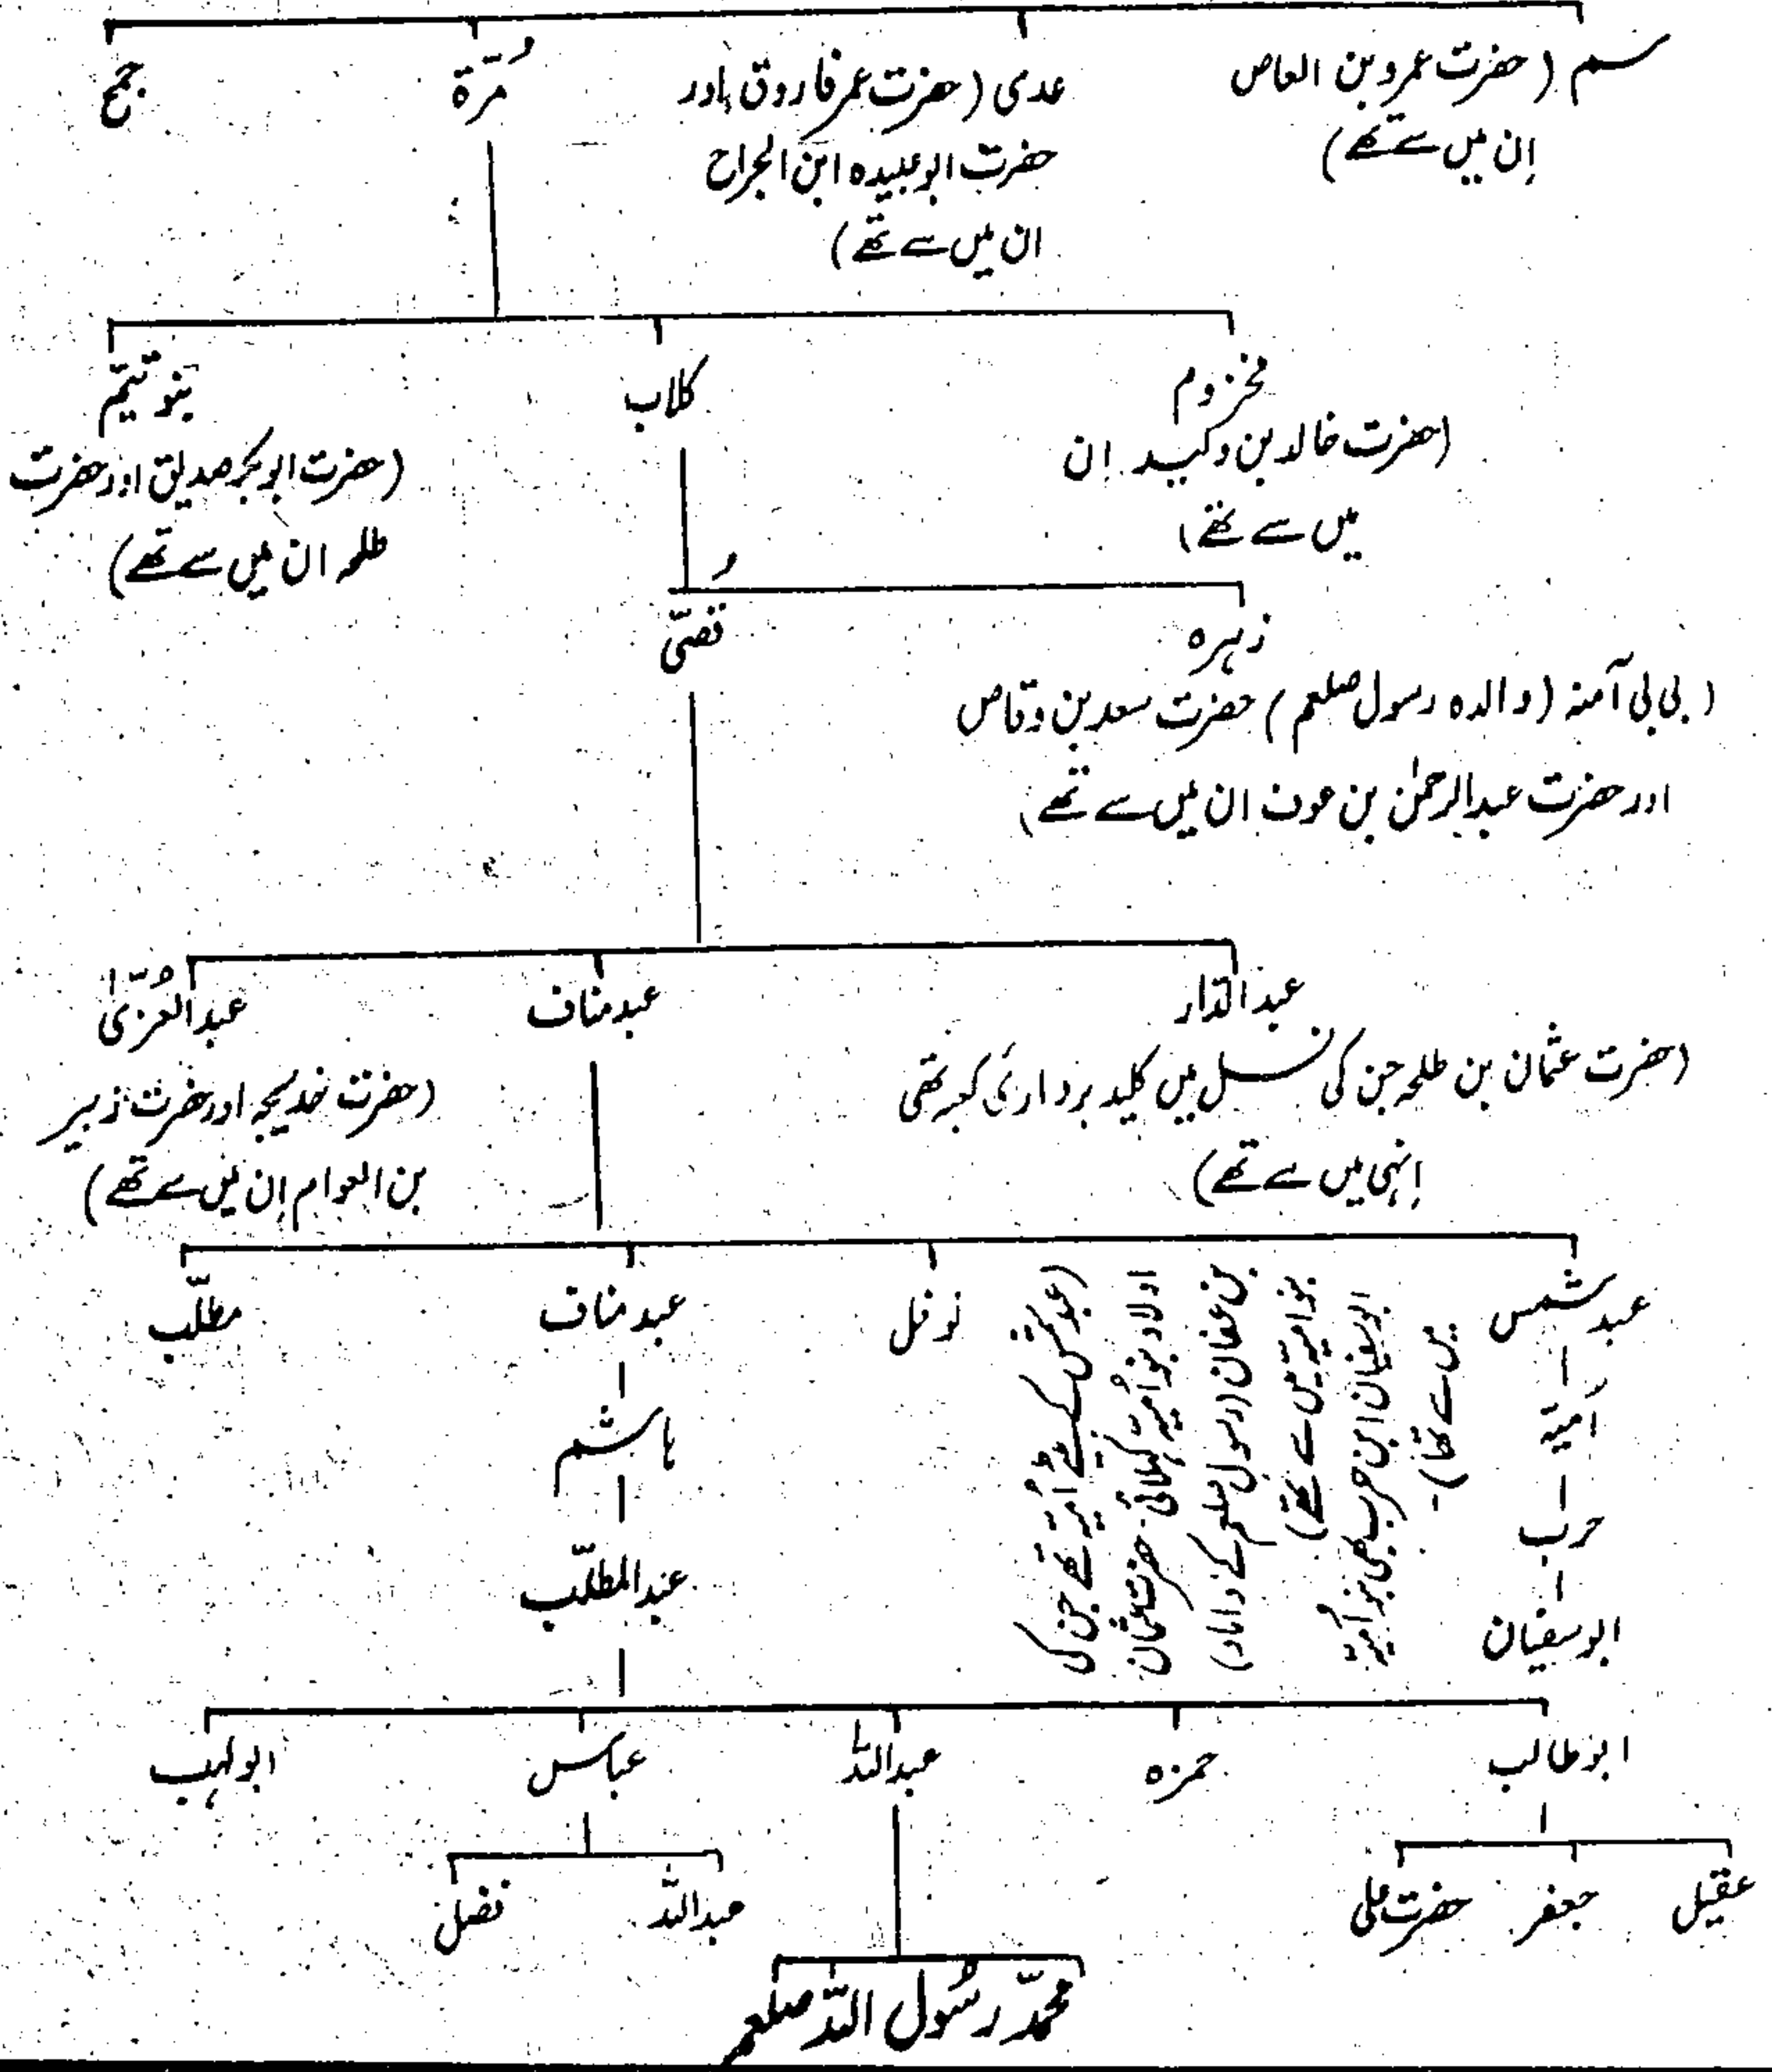 سہم (حضرت عمرو بن العاص
اِن میں سے تھے)
عدی (حضرت عمر فاروق اور
حضرت ابو عبیدہ ابن الجراح
ان میں سے تھے)
مُرّة
جمح
مخزوم
(حضرت خالد بن ولید اِن
میں سے تھے)
کلاب
بنو تیّم
(حضرت ابوبکر صدیق اور حضرت
طلحہ ان میں سے تھے)
زہرہ
(بی بی آمنہ (والدہ رسول صلعم) حضرت سعد بن وقاص
اور حضرت عبدالرحمٰن بن عوف ان میں سے تھے)
قُصیّ
عبدالدّار
(حضرت عثمان بن طلحہ جن کی نسل میں کلید برداریٔ کعبہ تھی
اِنہی میں سے تھے)
عبدمناف
عبدالعُزّیٰ
(حضرت خدیجہ اور حضرت زبیر
بن العوام اِن میں سے تھے)
عبدشمس
اُمیّہ
حرب
ابوسفیان
(عبدشمس کے بیٹے اُمیّہ تھے جن کی
اولاد بنو اُمیّہ کہلائی۔ حضرت عثمان
بن عفان (رسول صلعم کے داماد)
بنو امیّہ میں سے تھے)
ابوسفیان ابن حرب بھی بنو اُمیّہ
میں سے تھا)۔
نوفل
عبدمناف
ہاشم
عبدالمطلّب
مطلّب
ابوطالب
حمزہ
عبداللہ
عباس
ابولہب
عقیل
جعفر
حضرت علی
عبداللہ
فضل
محمّد رسُول اللہ صلعم